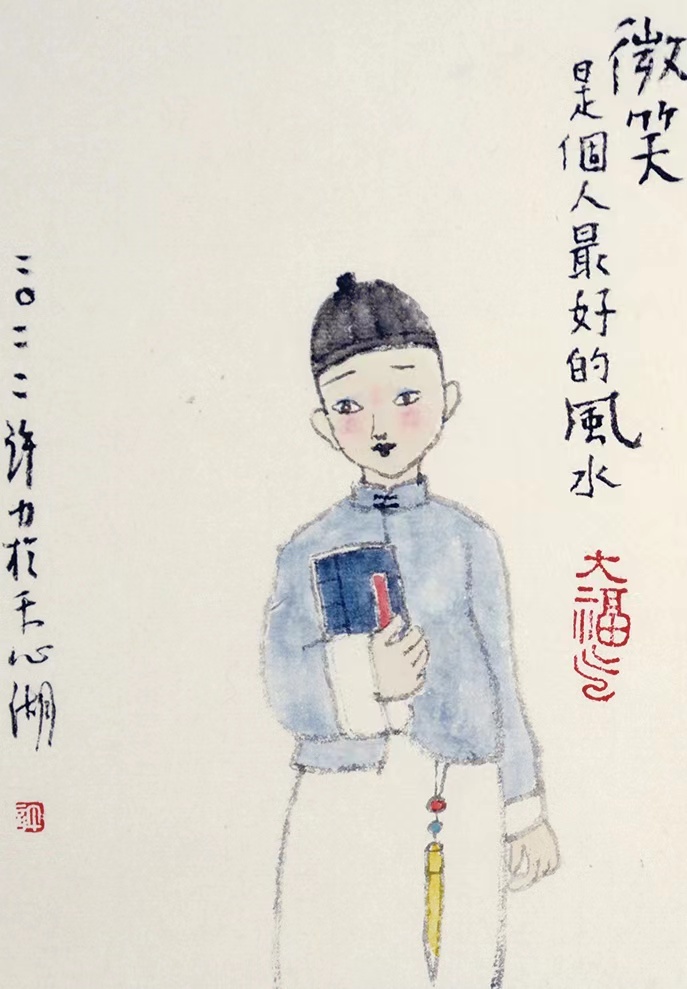 微笑
是個人最好的風水
大福
二〇二二許力於天心湖